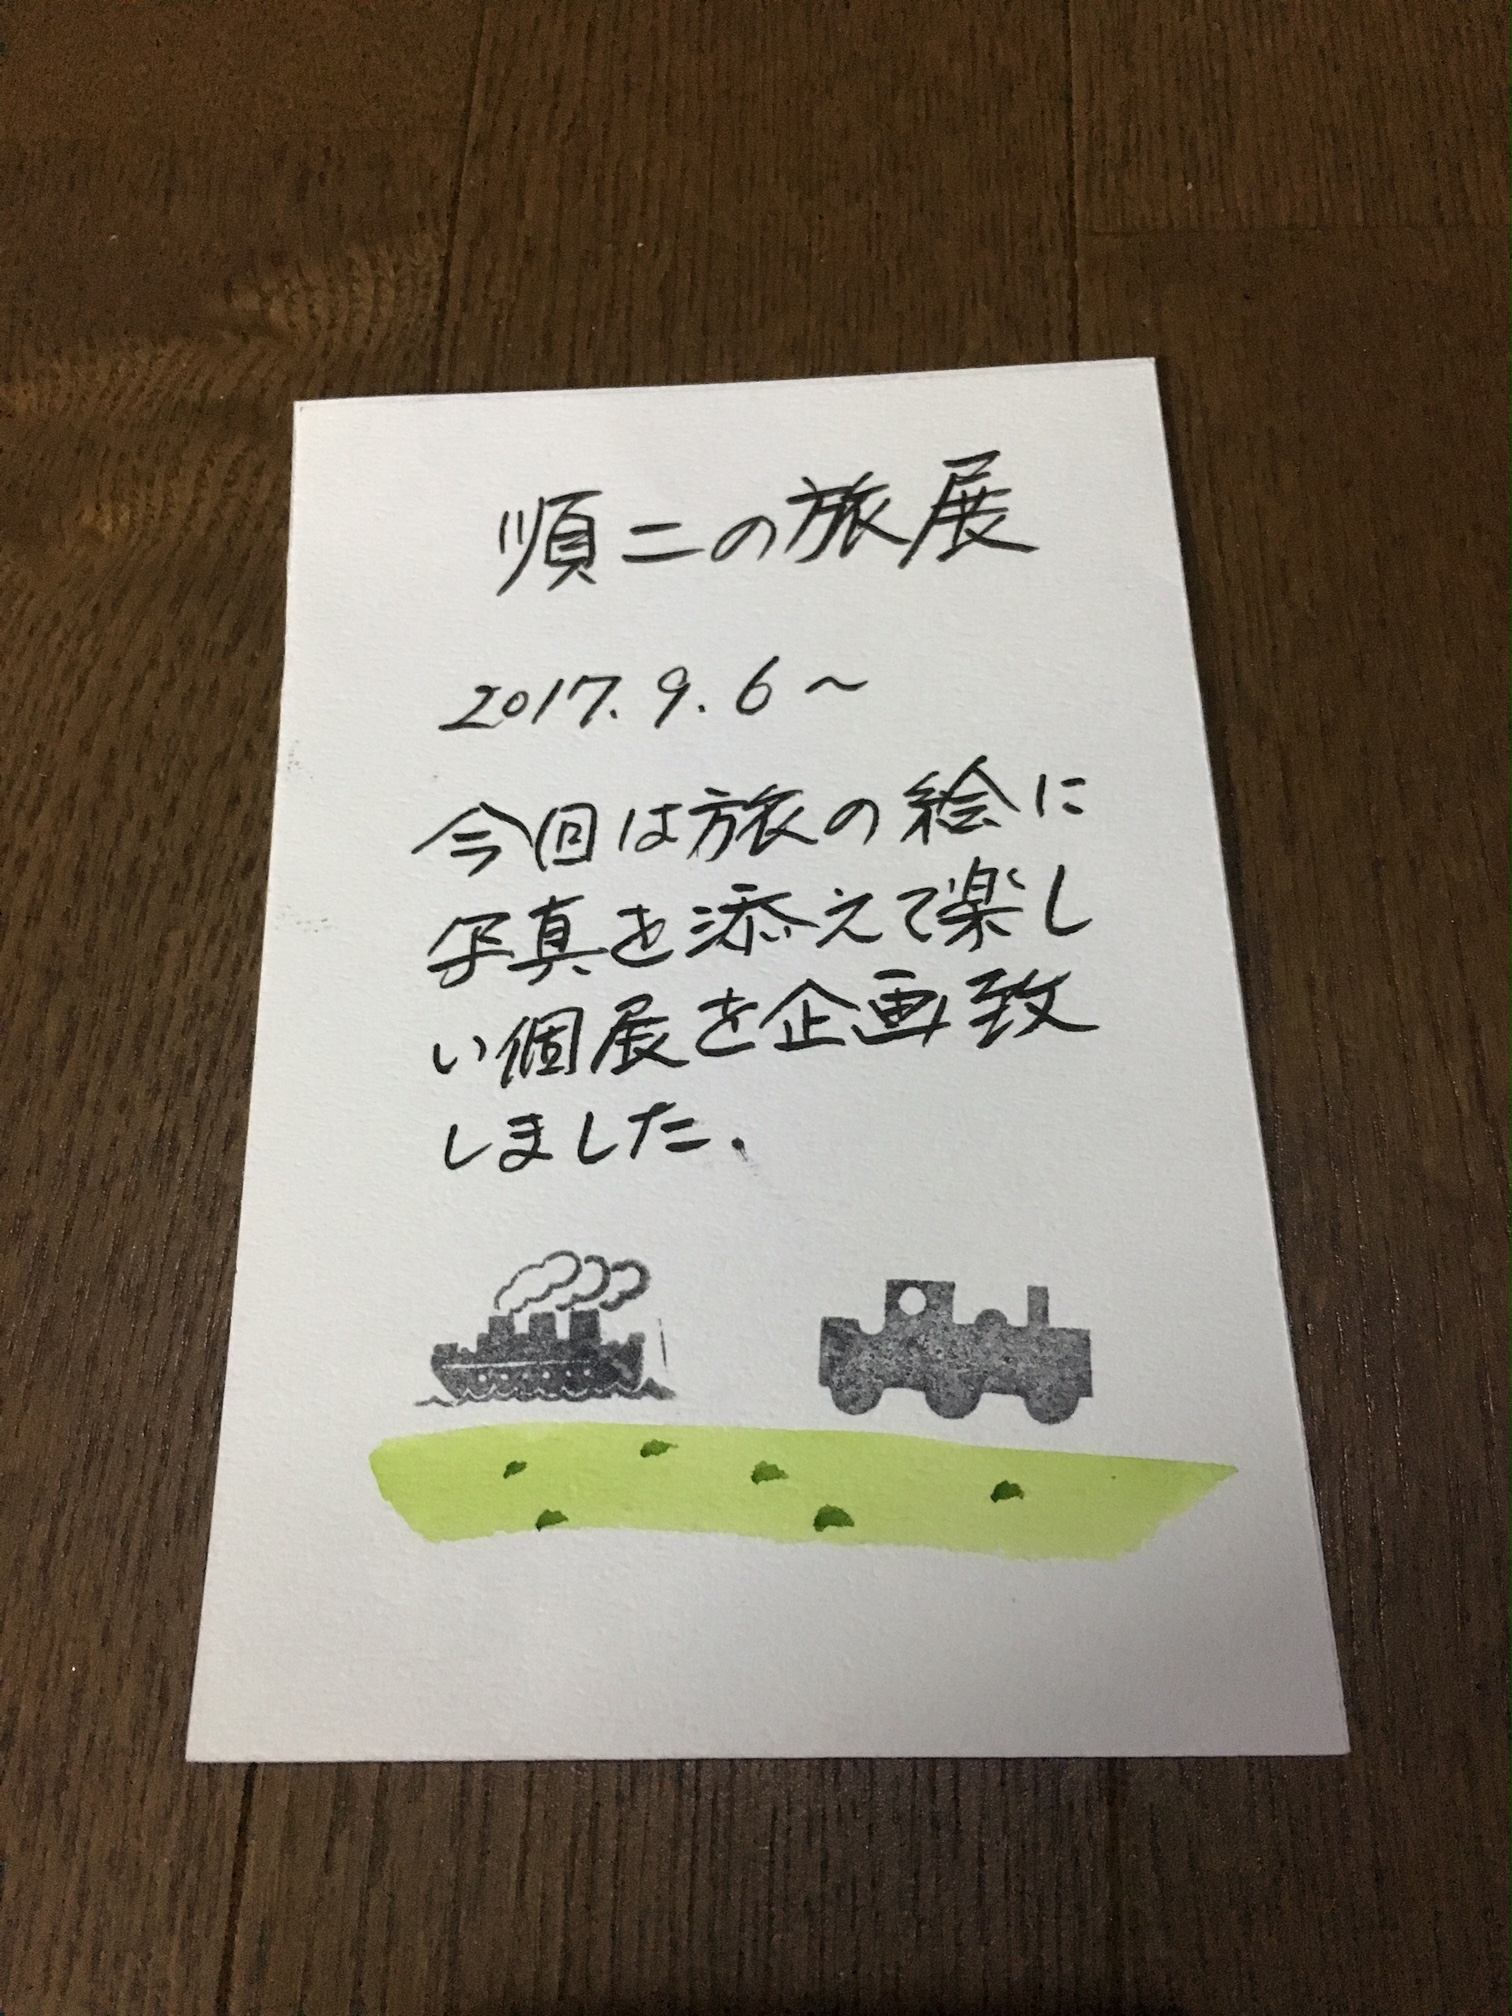 順二の旅展
2017.9.6～
今回は旅の絵に
写真を添えて楽し
い個展を企画致
しました.